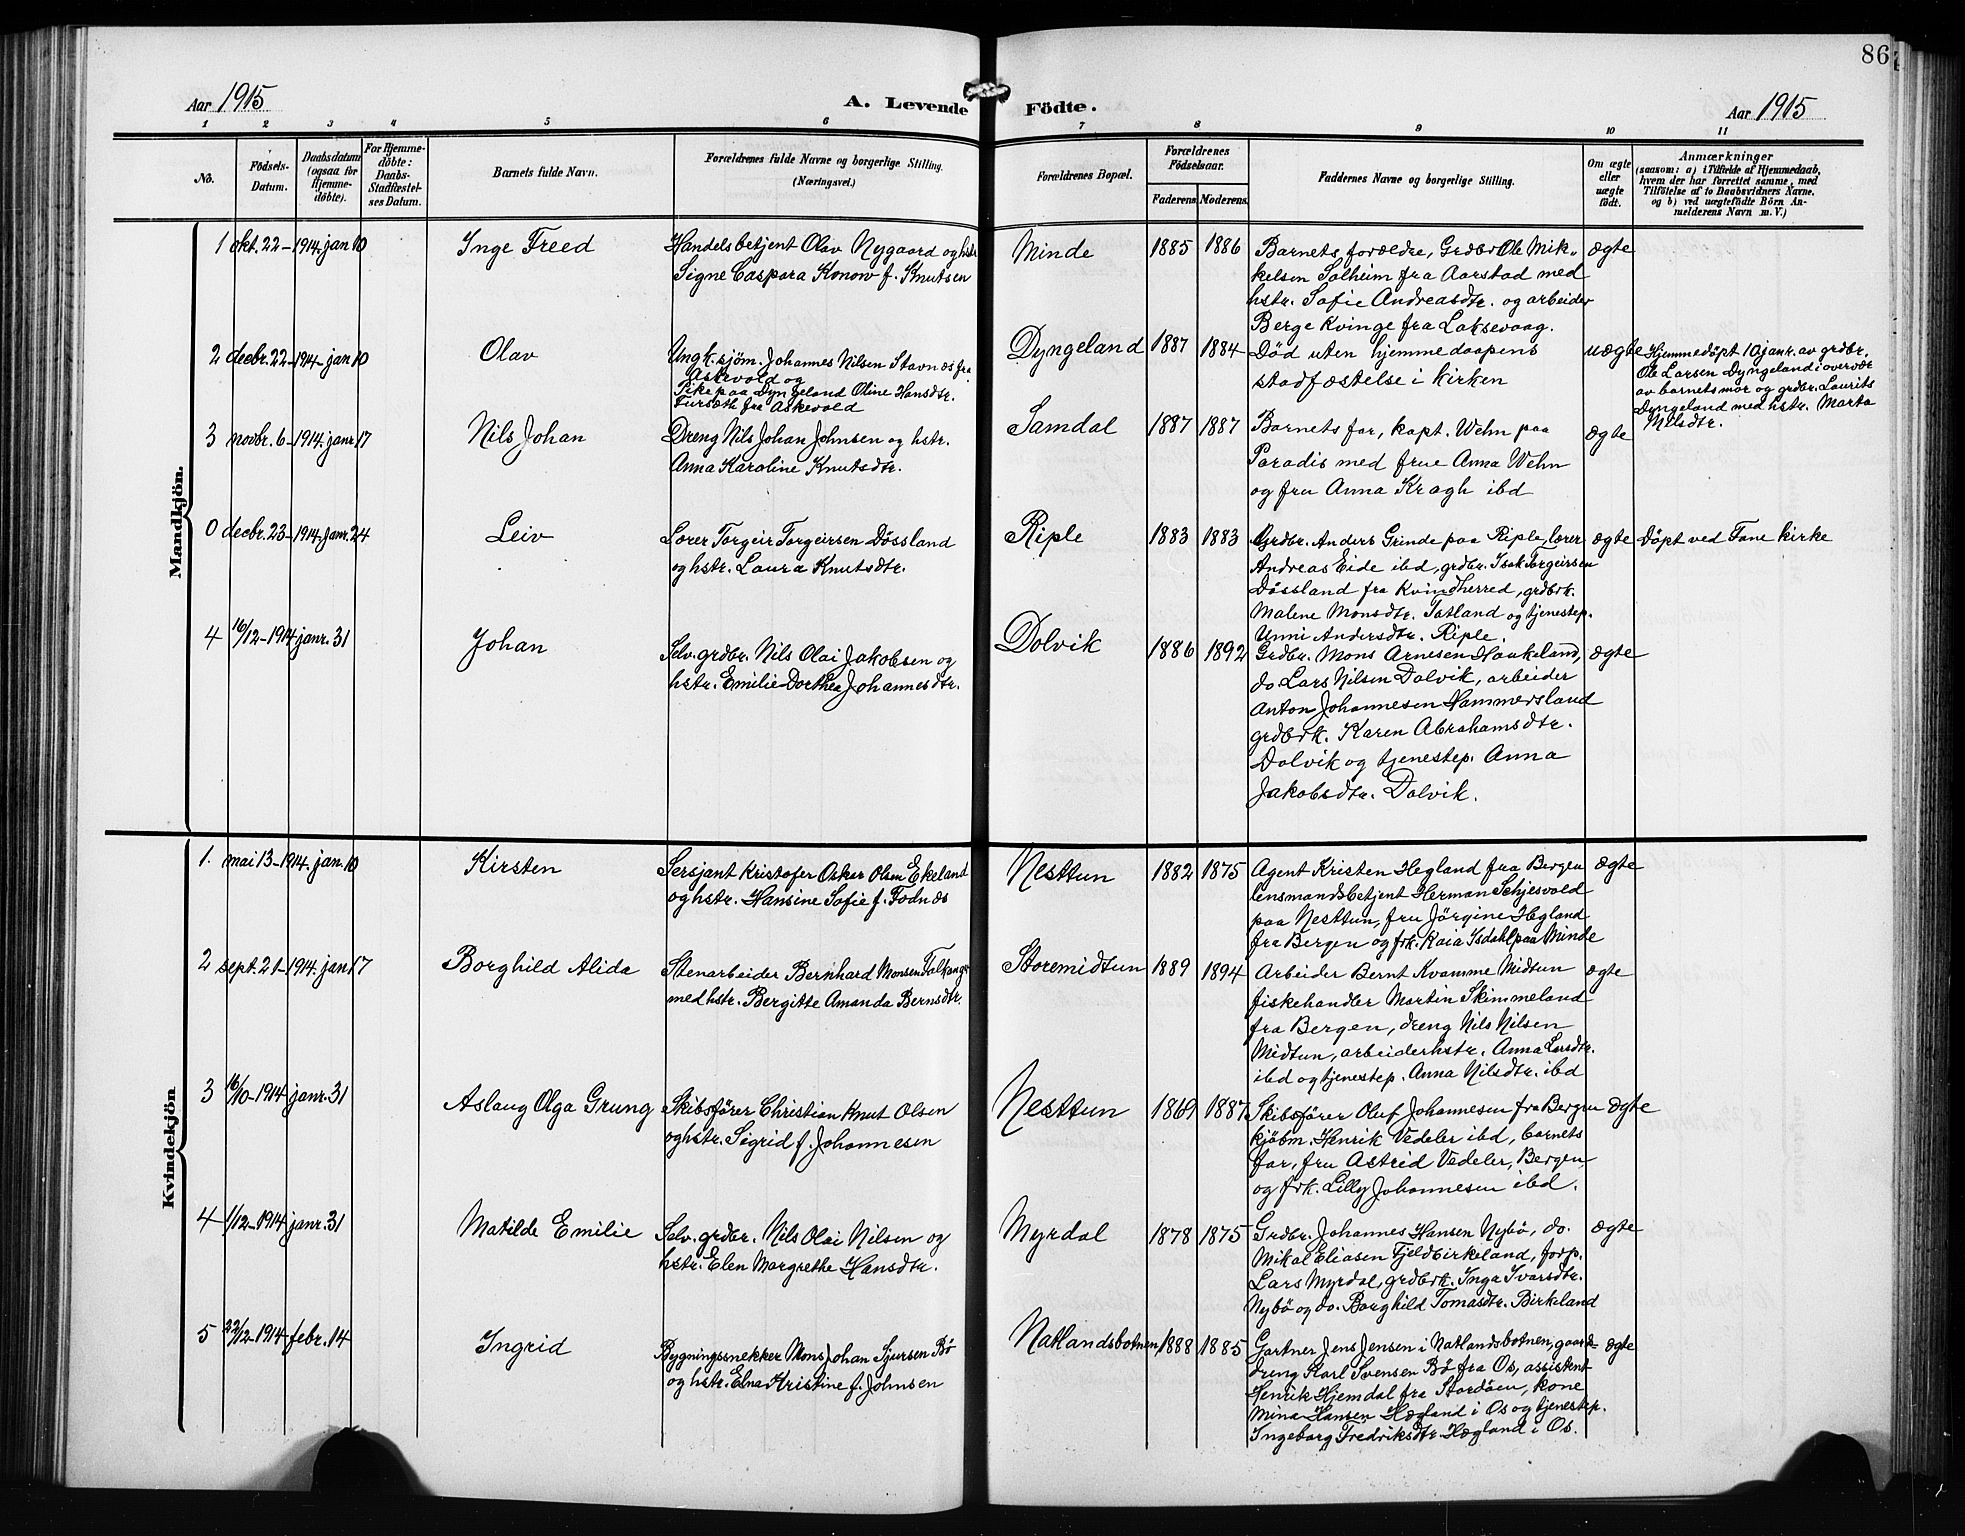 86
Aar 1915
A. Levende Födte.
Aar 1915
1 2 3 4 5 6 7 8 9 10 11
No.
Födsels-
Datum.
Daabsdatum
(ogsaa for
Hjemme-
döbte).
For Hjemme-
döbte:
Daabs-
Stadfæstel-
ses Datum.
Barnets fulde Navn.
Forældrenes fulde Navne og borgerlige Stilling.
(Næringsvei.)
Forældrenes Bopæl.
Forældrenes
Födselsaar.
Faderens. Moderens.
Faddernes Navne og borgerlige Stilling.
Om ægte
eller
uægte
födt.
Anmærkninger
(saasom: a) i Tilfælde af Hjemmedaab,
hvem der har forrettet samme, med
Tilföielse af to Daabsvidners Navne,
og b) ved uægtefödte Börn An-
melderens Navn m. V.)
Mandkjön.
1 okt. 22 - 1914. jan 10
Inge Freed
Handelsbetjent Olav Nygaard og hstr
Signe Caspara Konow f. Knutsen
Minde
1885 1886
Barnets forældre, Grdbr Ole Mik-
kelsen Solheim fra Aarstad med
hstr. Sofie Andreasdtr. og arbeider
Berge Kvinge fra Laksevaag.
ægte
2 decbr. 22 - 1914 - jan 10
Olav
Ungk. sjöm. Johannes Nilsen Stavnes fra
Askevold og
Pike paa Dyngeland Oline Hansdtr.
Furseth fra Askevold
Dyngeland
1887 1884
Död uten hjemmedaapens
stadfæstelse i kirken
uægte
Hjemmedöpt 10 janr. av grdbr.
Ole Larsen Dyngeland i overvær
av barnets mor og grdbr. Laurits
Dyngeland med hstr. Marta
Nilsdtr.
3 novbr. 6 - 1914. janr 17
Nils Johan
Dreng Nils Johan Johnsen og hstr.
Anna Karoline Knutsdtr.
Samdal
1887 1887
Barnets far, kapt. Wehn paa
Paradis med frue Anna Wehn
og fru Anna Kragh ibd
ægte
0 decbr. 23 - 1914 - janr. 24
Leiv
Lærer Torgeir Torgeirsen Døssland
og hstr. Laura Knutsdtr.
Riple
1883 1883
Grdbr. Anders Grinde paa Riple, lærer
Andreas Eide ibd, grdbr. Isak Torgeirssen
Døssland fra Kvindherred, grdbrk.
Malene Monsdtr. Tatland og tjenestep.
Unni Andersdtr. Riple.
ægte
Döpt ved Fane kirke
4 16/12 - 1914 janr. 31
Johan
Selv. grdbr. Nils Olai Jakobsen og
hstr. Emilie Dorthea Johannesdtr.
Dolvik
1886 1892
Grdbr. Mons Arnesen Haukeland,
do Lars Nilsen Dolvik, arbeider
Anton Johannesen Hammersland
grdbrk. Karen Abrahamsdtr.
Dolvik og tjenestep. Anna
Jakobsdtr. Dolvik.
ægte
Kvindekjön
1. mai 13 - 1914. jan. 10
Kirsten
Sersjant Kristofer Oskar Olsen Ekeland
og hstr. Hansine Sofie f. Fodnes
Nesttun
1882 1875
Agent Kristen Hegland fra Bergen
lensmandsbetjent Herman Schjesvold
paa Nesttun, fru Jörgine Hegland
fra Bergen og frk. Kaia Isdahl paa Minde
ægte
2 sept. 21 - 1914. jan 17
Borghild Alida
Stenarbeider Bernhard Monsen Falkanger
med hstr. Bergitte Amanda Berntsdtr.
Storemidtun
1889 1894
Arbeider Bernt Kvamme Midtun
fiskehandler Martin Skimmeland
fra Bergen, dreng Nils Nilsen
Midtun, arbeiderhstr. Anna Larsdtr.
ibd og tjenestep. Anna Nilsdtr. ibd
ægte
3 16/10 - 1914 janr. 31
Aslaug Olga Grung
Skibsförer Christian Knut Olsen
og hstr. Sigrid f. Johannesen
Nesttun
1869 1887
Skibsförer Oluf Johannesen fra Bergen
kjöbm. Henrik Vedeler ibd, barnets
far, fru Astrid Vedeler, Bergen,
og frk. Lilly Johannesen ibd.
ægte
4 1/12 - 1914 janr. 31
Matilde Emilie
Selv. grdbr. Nils Olai Nilsen og
hstr. Elen Margrethe Hansdtr.
Myrdal
1878 1875
Grdbr. Johannes Hansen Nybö, do.
Mikal Eliasen Fjeldbirkeland, forp.
Lars Myrdal, grdbrk. Inga Ivarsdtr.
Nybö og do. Borghild Tomasdtr. Birkeland
ægte
5 22/12 - 1914 febr. 14
Ingrid
Bygningssnekker Mons Johan Sjursen Bö
og hstr. Elna Kristine f. Johnsen
Natlandsbotnen
1888 1885
Gartner Jens Jensen i Natlandsbotnen, gaard-
dreng Karl Svensen Bö fra Os, assistent
Henrik Hjemdal fra Stordöen, kone
Mina Hansen Hægland i Os og tjenestep.
Ingeborg Fredriksdtr Hægland i Os.
ægte